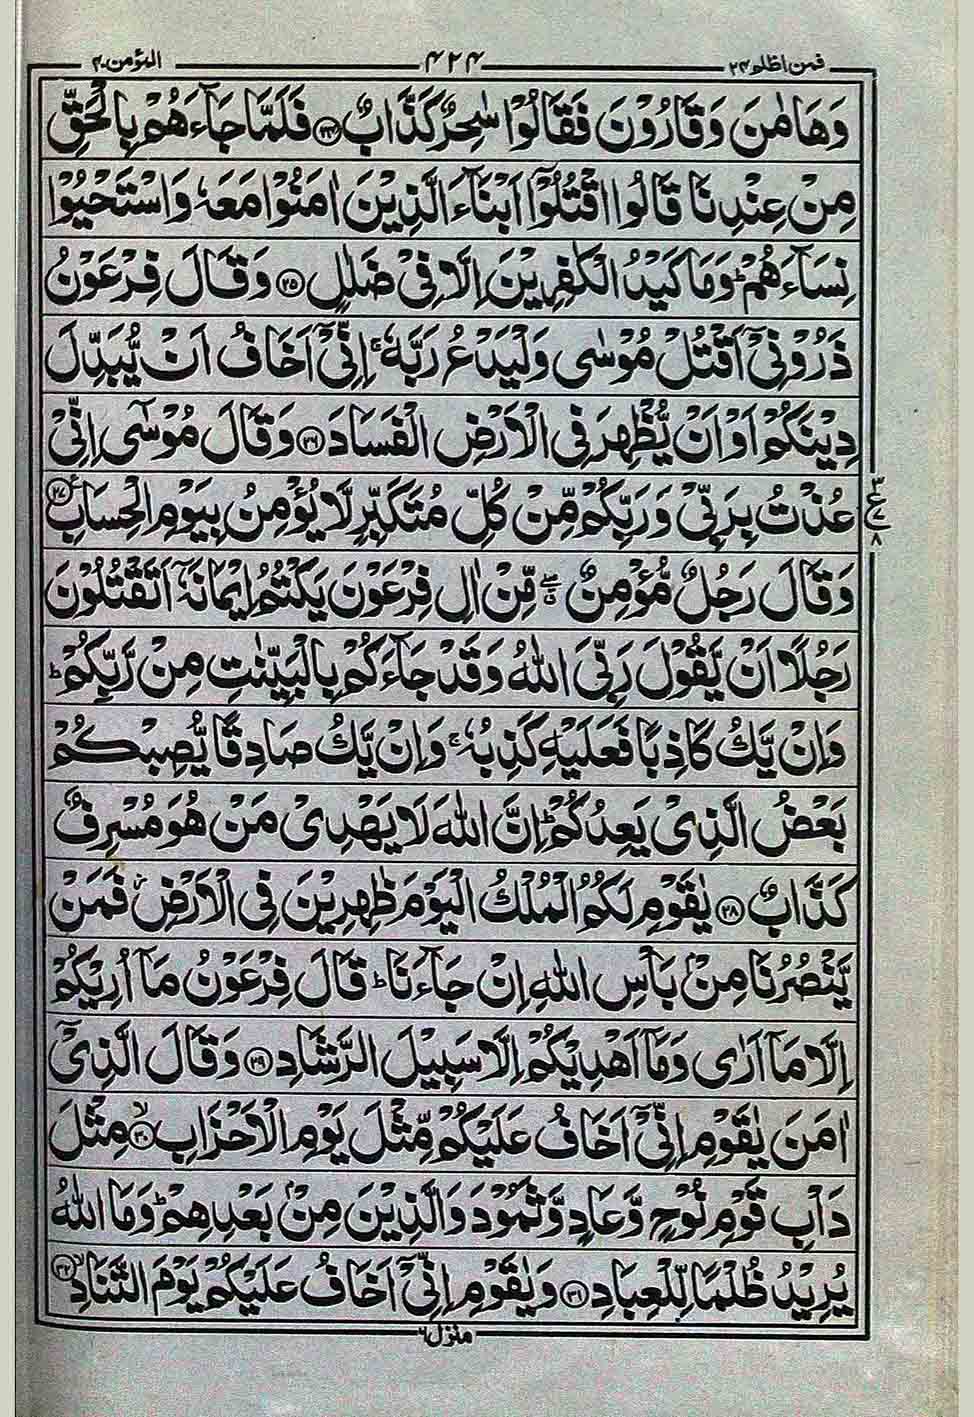 فمن اظلم ۲۴ ۴۲۴ المؤمن ۴۰
وَهَامٰنَ وَقَارُوْنَ فَقَالُوْا سٰحِرٌ كَذَّابٌ ﴿۲۴﴾ فَلَمَّا جَآءَهُمْ بِالْحَقِّ
مِنْ عِنْدِنَا قَالُوا اقْتُلُوْٓا اَبْنَآءَ الَّذِيْنَ اٰمَنُوْا مَعَهٗ وَاسْتَحْيُوْا
نِسَآءَهُمْ ؕ وَمَا كَيْدُ الْكٰفِرِيْنَ اِلَّا فِيْ ضَلٰلٍ ﴿۲۵﴾ وَقَالَ فِرْعَوْنُ
ذَرُوْنِيْٓ اَقْتُلْ مُوْسٰى وَلْيَدْعُ رَبَّهٗ ۚ اِنِّيْٓ اَخَافُ اَنْ يُّبَدِّلَ
دِيْنَكُمْ اَوْ اَنْ يُّظْهِرَ فِي الْاَرْضِ الْفَسَادَ ﴿۲۶﴾ وَقَالَ مُوْسٰٓى اِنِّيْ
عُذْتُ بِرَبِّيْ وَرَبِّكُمْ مِّنْ كُلِّ مُتَكَبِّرٍ لَّا يُؤْمِنُ بِيَوْمِ الْحِسَابِ ﴿۲۷﴾ ۳ ع ۸
وَقَالَ رَجُلٌ مُّؤْمِنٌ ۖ مِّنْ اٰلِ فِرْعَوْنَ يَكْتُمُ اِيْمَانَهٗٓ اَتَقْتُلُوْنَ
رَجُلًا اَنْ يَّقُوْلَ رَبِّيَ اللّٰهُ وَقَدْ جَآءَكُمْ بِالْبَيِّنٰتِ مِنْ رَّبِّكُمْ ؕ
وَاِنْ يَّكُ كَاذِبًا فَعَلَيْهِ كَذِبُهٗ ۚ وَاِنْ يَّكُ صَادِقًا يُّصِبْكُمْ
بَعْضُ الَّذِيْ يَعِدُكُمْ ؕ اِنَّ اللّٰهَ لَا يَهْدِيْ مَنْ هُوَ مُسْرِفٌ
كَذَّابٌ ﴿۲۸﴾ يٰقَوْمِ لَكُمُ الْمُلْكُ الْيَوْمَ ظٰهِرِيْنَ فِي الْاَرْضِ ز فَمَنْ
يَّنْصُرُنَا مِنْۢ بَاْسِ اللّٰهِ اِنْ جَآءَنَا ؕ قَالَ فِرْعَوْنُ مَآ اُرِيْكُمْ
اِلَّا مَآ اَرٰى وَمَآ اَهْدِيْكُمْ اِلَّا سَبِيْلَ الرَّشَادِ ﴿۲۹﴾ وَقَالَ الَّذِيْٓ
اٰمَنَ يٰقَوْمِ اِنِّيْٓ اَخَافُ عَلَيْكُمْ مِّثْلَ يَوْمِ الْاَحْزَابِ ﴿۳۰﴾ۙ مِثْلَ
دَاْبِ قَوْمِ نُوْحٍ وَّعَادٍ وَّثَمُوْدَ وَالَّذِيْنَ مِنْۢ بَعْدِهِمْ ؕ وَمَا اللّٰهُ
يُرِيْدُ ظُلْمًا لِّلْعِبَادِ ﴿۳۱﴾ وَيٰقَوْمِ اِنِّيْٓ اَخَافُ عَلَيْكُمْ يَوْمَ التَّنَادِ ﴿۳۲﴾ۙ
منزل ۶